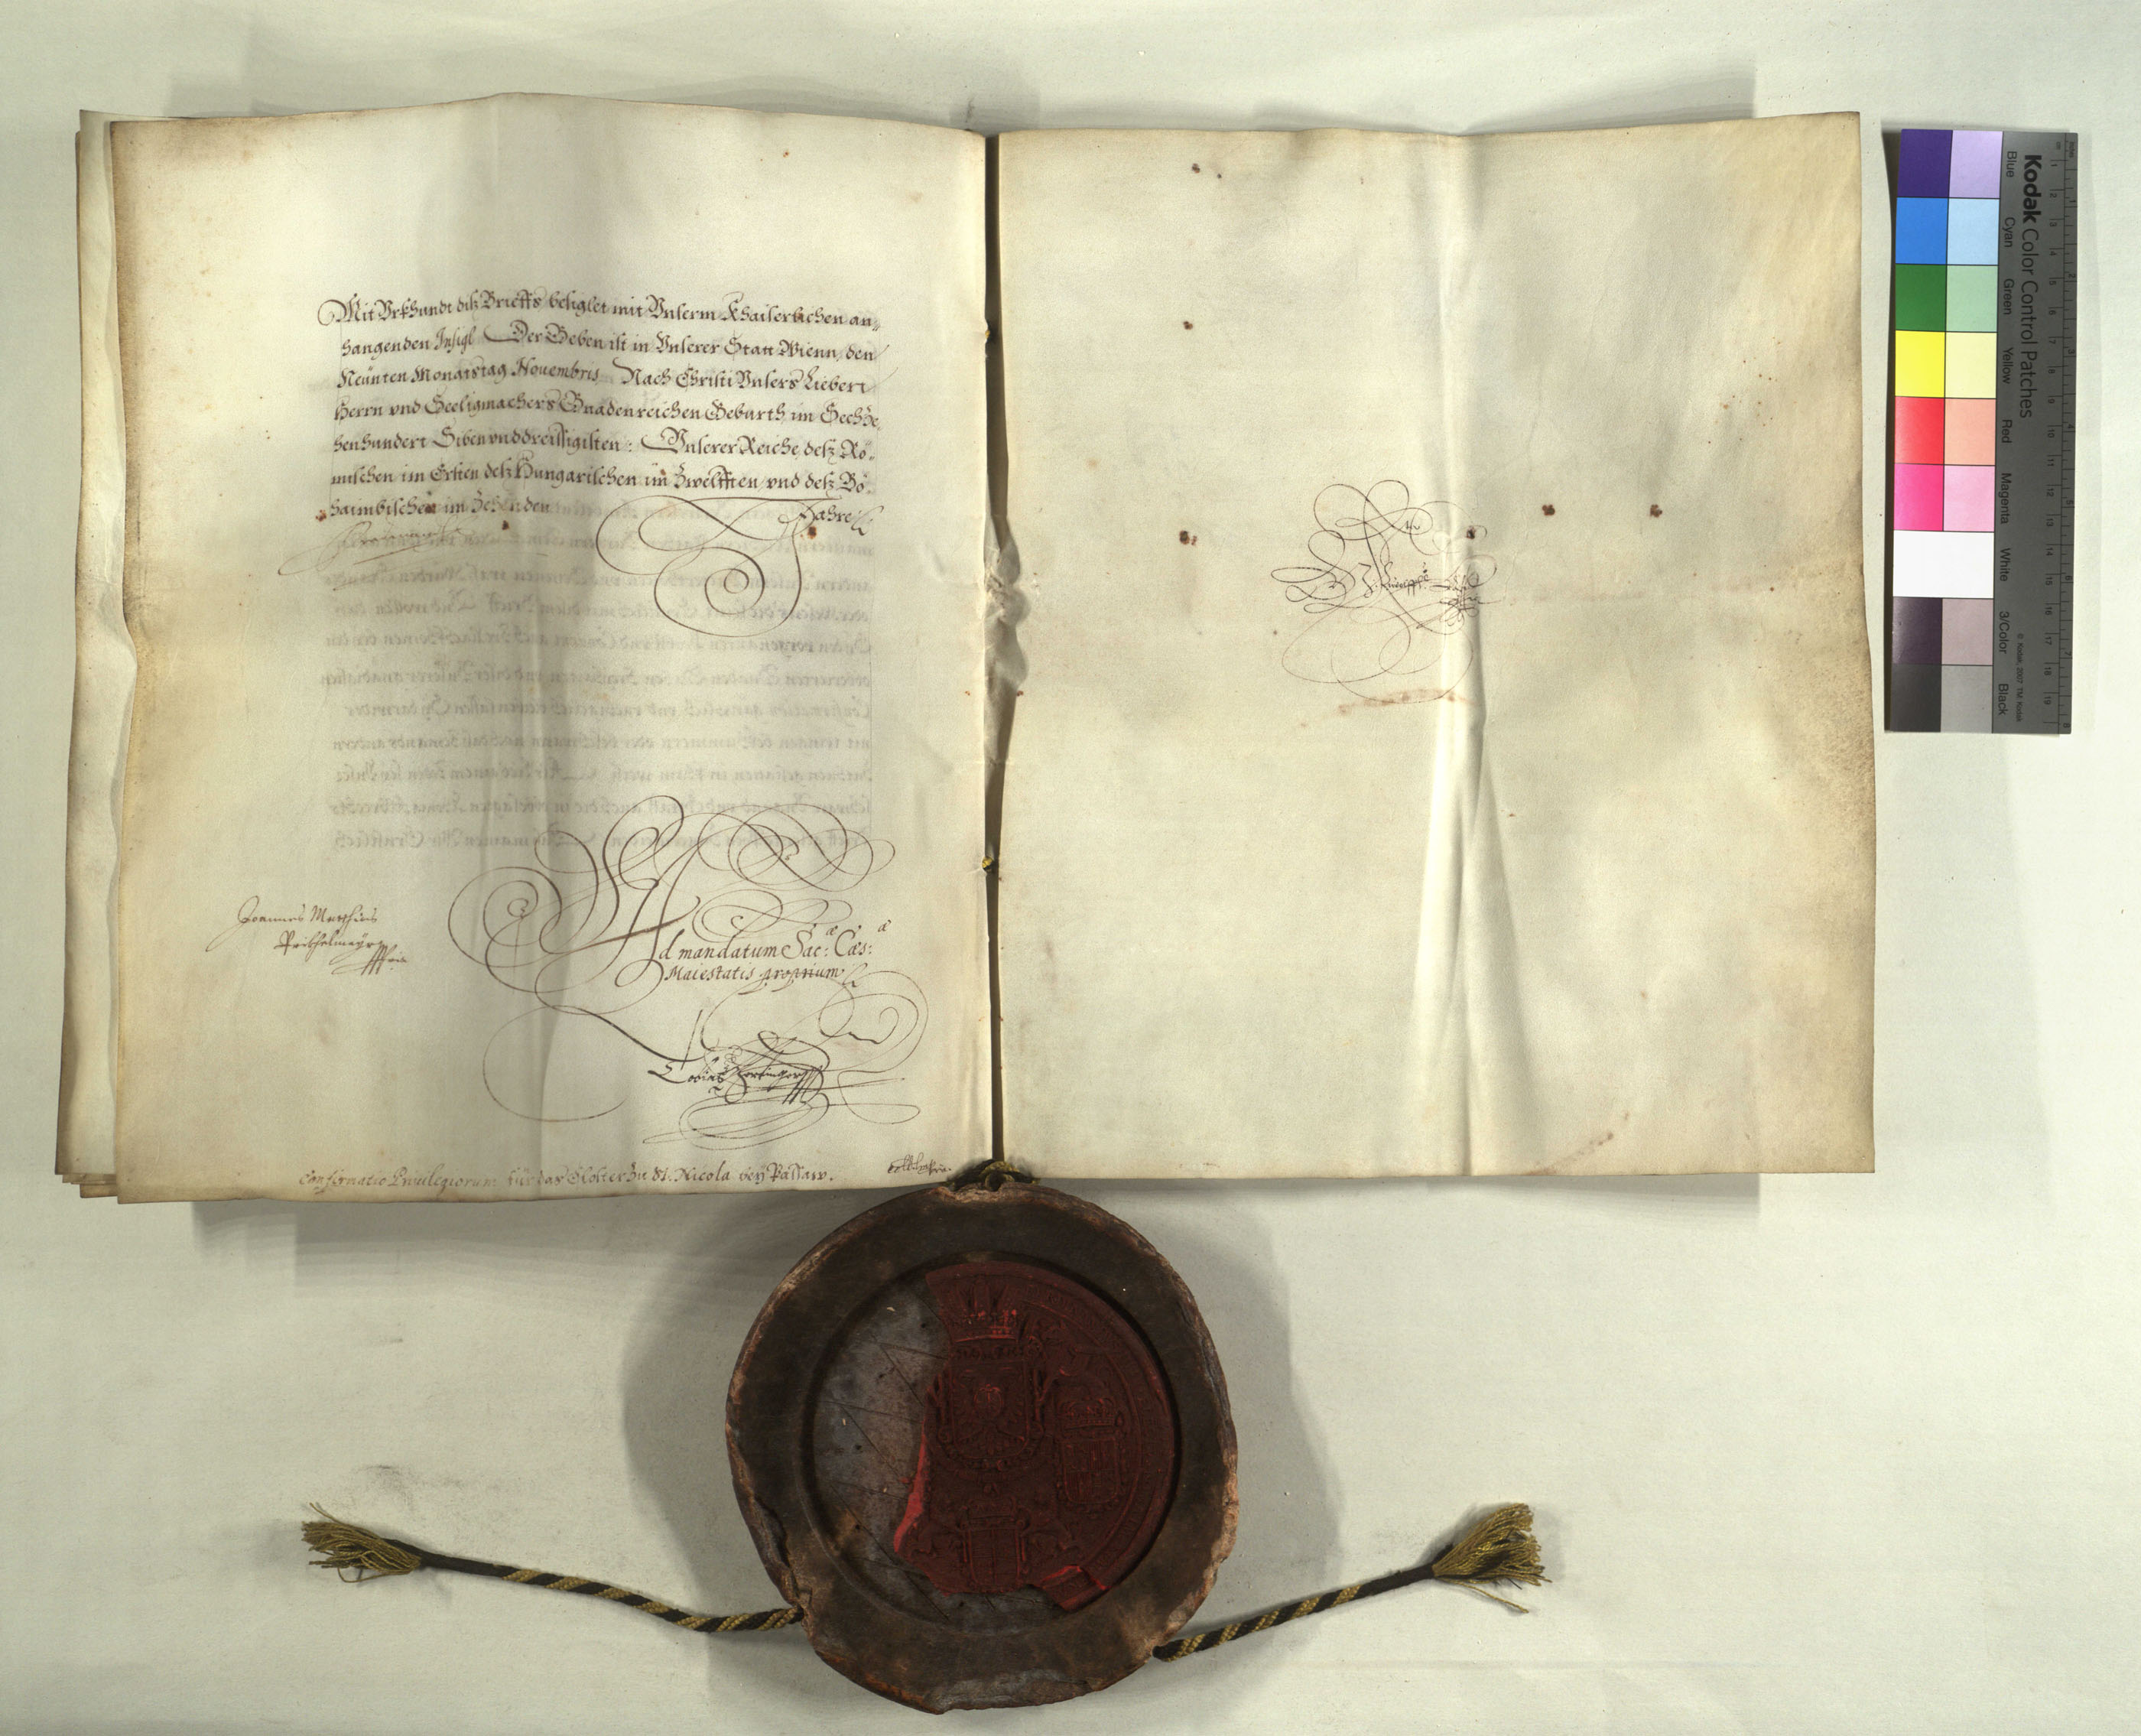 Mit Vrkhundt diß Brieffs besiglet mit Vnserm Khaiserlichen an-
hangenden Insigl Der Geben ist in Vnserer Statt Wienn, den
Neunten Monatstag Nouembris Nach Christi Vnsers Lieben
Herrn vnd Seeligmachers Gnadenreichen Geburth, im Sechze-
henhundert Sibenvnddreissigisten: Vnserer Reiche, deß Rö-
mischen im Ersten, deß Hungarischen im Zwelfften, vnd deß Bö-
haimbischen im Zehenden Jahre
Joannes Matthias
Prikhelmayr
Ad mandatum Sac: æ Cæs: æ
Maiestatis proprium
Tobias Gertinger
Confirmatio Priuilegiorum für das Closter zu St. Nicola beÿ Passaw.
Kodak Color Control Patches
Blue Cyan Green Yellow Red Magenta White 3/Color Black
© Kodak, 2007 TM: Kodak
1 2 3 4 5 6 7 8 9 10 11 12 13 14 15 16 17 18 19